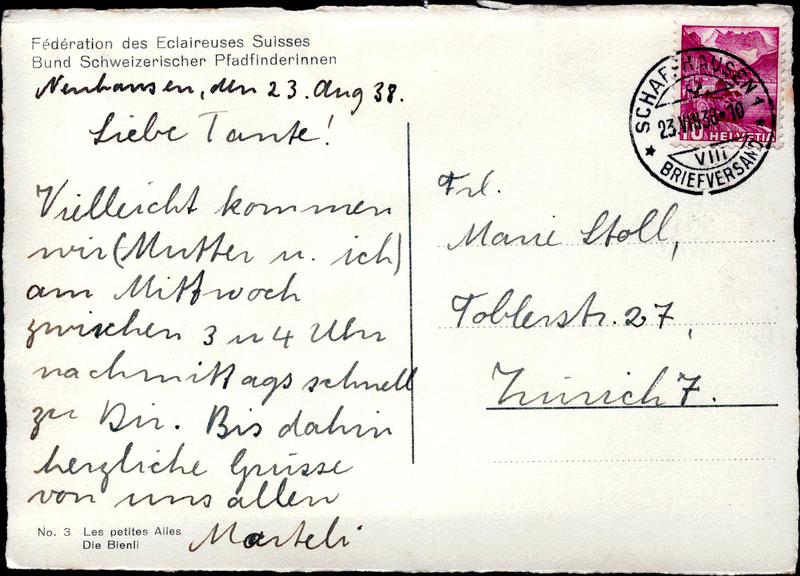 Fédération des Eclaireuses Suisses
Bund Schweizerischer Pfadfinderinnen
Neuhausen, den 23. Aug 38.
Liebe Tante!
Vielleicht kommen
wir (Mutter u. ich)
am Mittwoch
zwischen 3 u 4 Uhr
nachmittags schnell
zu Dir. Bis dahin
herzliche Grüsse
von uns allen
Marteli
No. 3 Les petites Ailes
Die Bienli
SCHAFFHAUSEN 1
23.VIII38-10
VIII
BRIEFVERSAND
10 HELVETIA
Frl.
Marie Stoll,
Toblerstr. 27,
Zürich 7.